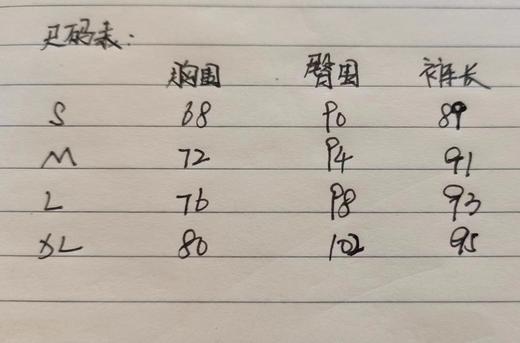 尺码表:
胸围 臀围 裤长
S 68 90 89
M 72 94 91
L 76 98 93
XL 80 102 95